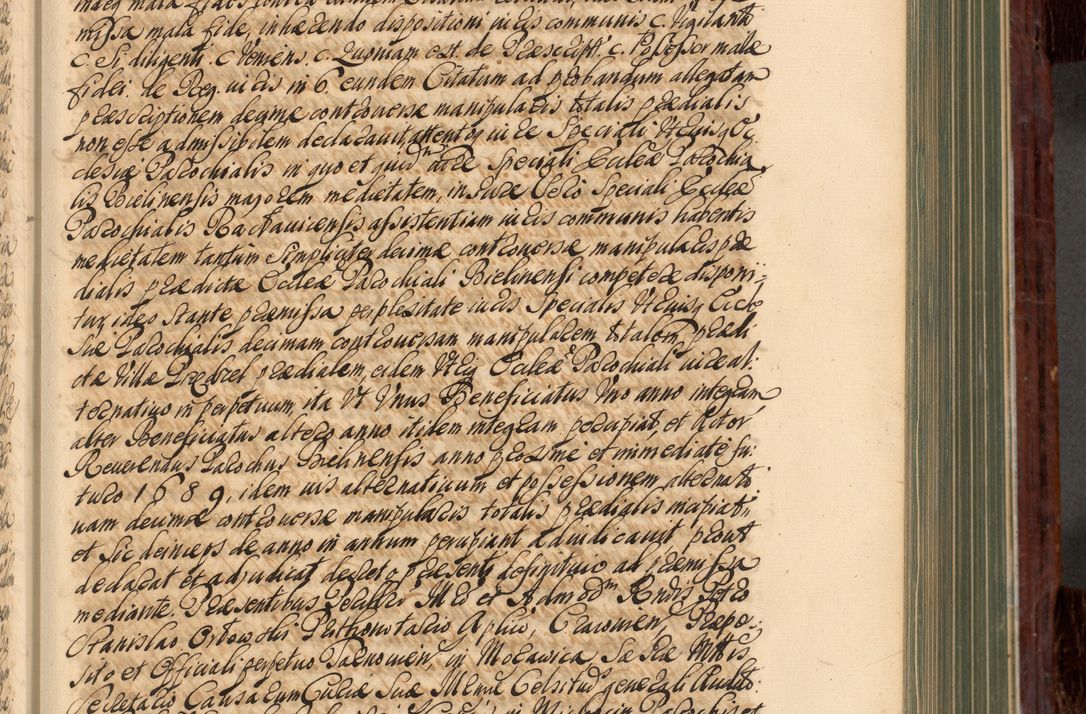 missa mala fide, inhærendo dispositioni iuris communis c. Vigilanti
c. Si diligenti. c. Veniens. c. Quoniam est. de Præscript. c. Possessor malæ
fidei de Reg. iuris in 6. eundem Citatum ad probandum allegatam
præscriptionem decimæ controversæ manipularis totalis prædialis
non esse admissibilem declaravit, attento iure Speciali Utriusq Ec
clesiæ Parochialis in quo et quidm iure Speciali Eccleæ Parochia
lis Bielinensis majorem medietatem, in iure vero Speciali Eccleæ
Parochialis Raclavicensis assistentiam iuris communis habentis
medietatem tantum Simpliciter decimæ controversæ manipularis præ
dialis prædictæ Eccleæ Parochiali Bielinensi competere disponi-
tur, ideo stante præmissa perplexitate iuris Specialis Utriusq Eccle
siæ Parochialis decimam controversam manipularem totalem prædi
ctæ Villæ Przedzel prædialem, eidem Utriq Eccleæ Parochiali iure al-
ternativo in perpetuum, ita Ut Unus Beneficiatus Uno anno integram
alter Beneficiatus altero anno itidem integram percipiat et Actor
Reverendus Parochus Bielinensis anno proxime et immediate fu-
turo 1689, idem ius alternativum et possessionem alternati
vam decimæ controversæ manipularis totalis prædialis incipiat
et sic deinceps de anno in annum percipiant adiudicavit prout
declarat et adiudicat decreto præsenti definitivo ad præmissa
mediante. Præsentibus Perillri Mgo et Admodm Rndis Petro
Stanislao Orłowski Prothonotario Aplico, Cracovien, Præpo-
sito et Officiali perpetuo Tarnovien, in Morawica Sacræ Mttis
Secretario Causarum Curiæ Suæ Illmæ Celsitud generali Audito-